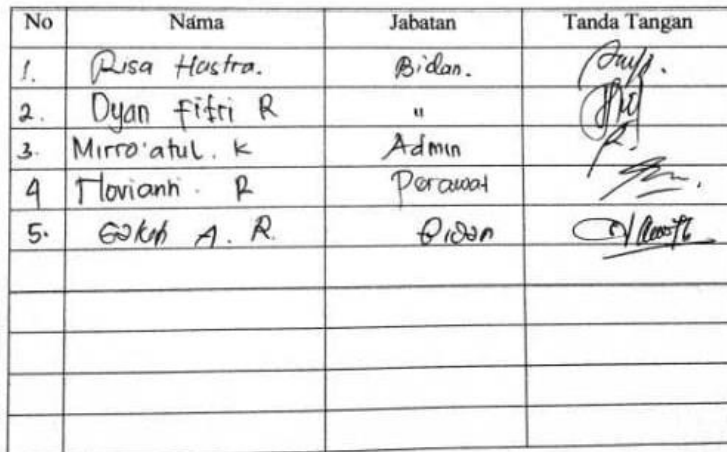 No Nama Jabatan Tanda Tangan
1. Risa Hastra. Bidan.
2. Dyan Fitri R "
3. Mirro'atul. K Admin
4 Novianti. R Perawat
5. A. R. Bidan